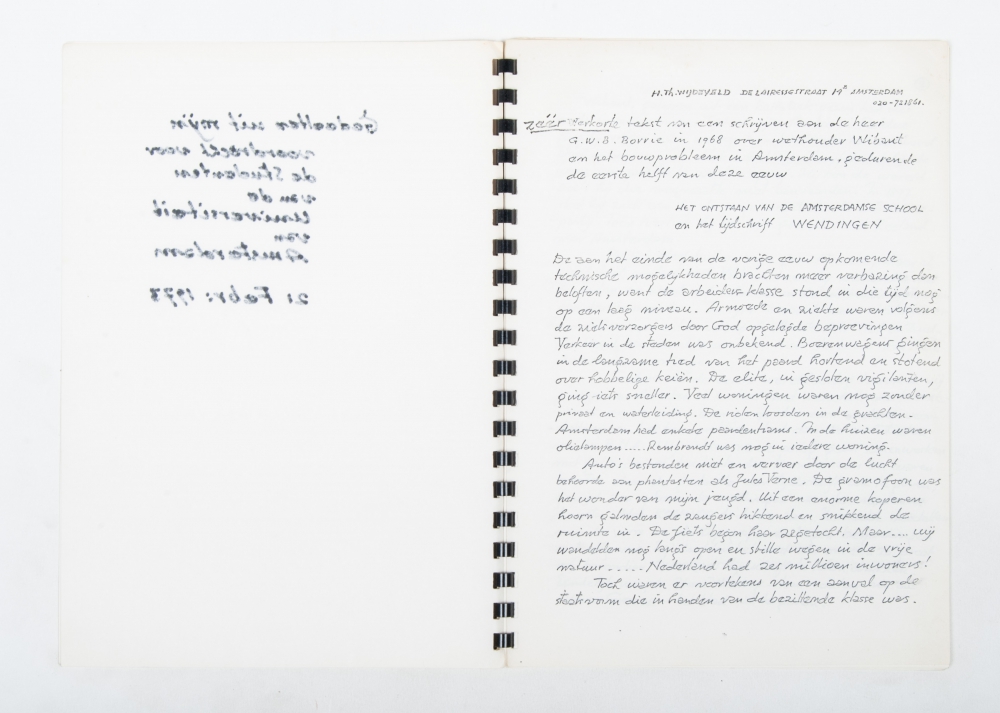 Gedeelten uit mijn
voordracht voor
de Studenten
van de
Universiteit
van
Amsterdam
21 Febr: 1973
H.Th. WIJDEVELD DE LAIRESSESTRAAT 14B AMSTERDAM
020-721861.
zéér verkorte tekst van een schrijven aan de heer
G.W.B. Borrie in 1968 over wethouder Wibaut
en het bouwprobleem in Amsterdam, gedurende
de eerste helft van deze eeuw
HET ONTSTAAN VAN DE AMSTERDAMSE SCHOOL
en het tijdschrift WENDINGEN
De aan het einde van de vorige eeuw opkomende
technische mogelijkheden brachten meer verbazing dan
beloften, want de arbeidersklasse stond in die tijd nog
op een laag niveau. Armoede en ziekte waren volgens
de zielsverzorgers door God opgelegde beproevingen
Verkeer in de steden was onbekend. Boerenwagens gingen
in de langzame tred van het paard hortend en stotend
over hobbelige keiën. De elite, in gesloten vigilanten,
ging iets sneller. Veel woningen waren nog zonder
privaat en waterleiding. De riolen loosden in de grachten.
Amsterdam had enkele paardentrams. In de huizen waren
olielampen ..... Rembrandt was nog in iedere woning.
Auto's bestonden niet en vervoer door de lucht
behoorde aan phantasten als Jules Verne. De gramofoon was
het wonder van mijn jeugd. Uit een enorme koperen
hoorn galmden de zangers hikkend en snikkend de
ruimte in. De fiets begon haar zegetocht. Maar.... wij
wandelden nog langs open en stille wegen in de vrije
natuur ..... Nederland had zes millioen inwoners!
Toch waren er voortekens van een aanval op de
staatsvorm die in handen van de bezittende klasse was.